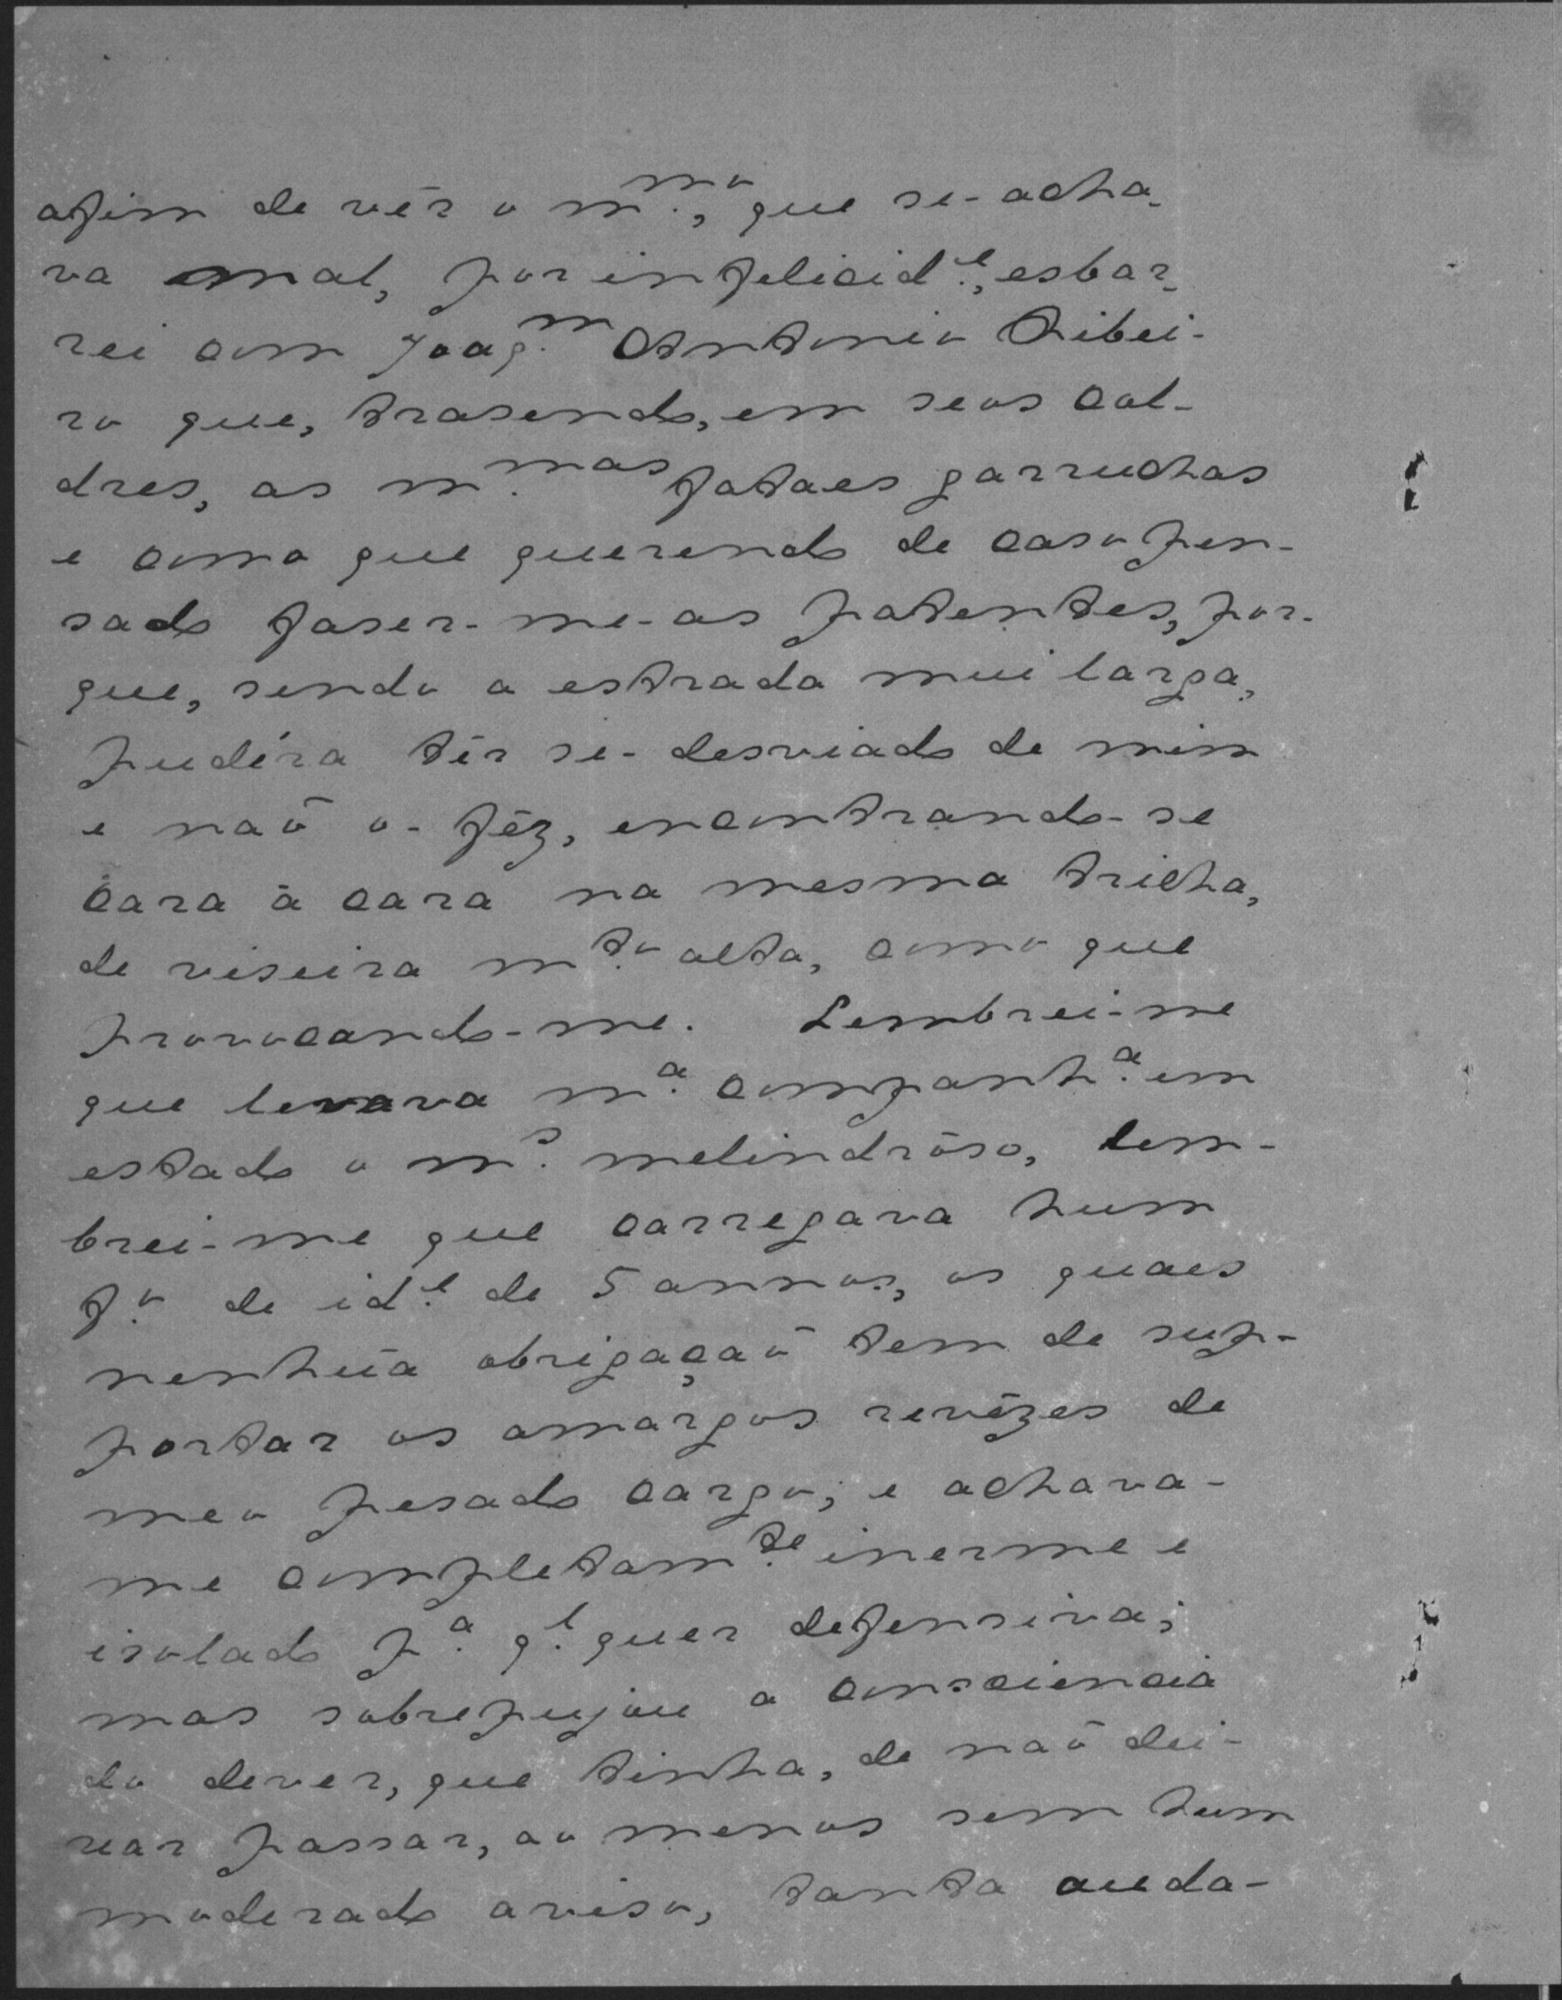 afim de vêr o m.mo, que se-acha-
va mal, por infelicid.e, esbar-
rei com Joaq.m Antonio Ribei-
ro que, trasendo, em seos col-
dres, as m.mas fataes garruchas
e como que querendo de caso pen-
sado faser-me-as patentes, por-
que, sendo a estrada mui larga,
pudéra têr se-desviado de mim
e naõ o-fêz, encontrando-se
cara à cara na mesma trilha,
de viseira m.to alta, como que
provocando-me. Lembrei-me
que levava m.a companh.a em
estado o m.s melindrôso, lem-
brei-me que carregava hum
f.o de id.e de 5 annos, os quaes
nenhuã obrigaçaõ tem de sup-
portar os amargos revêzes de
meo pesado cargo; e achava-
me completam.te inerme e
isolado p.a q.l quer defensiva;
mas sobrepujou a consciencia
do dever, que tinha, de naõ dei-
xar passar, ao menos sem hum
moderado aviso, tanta auda-